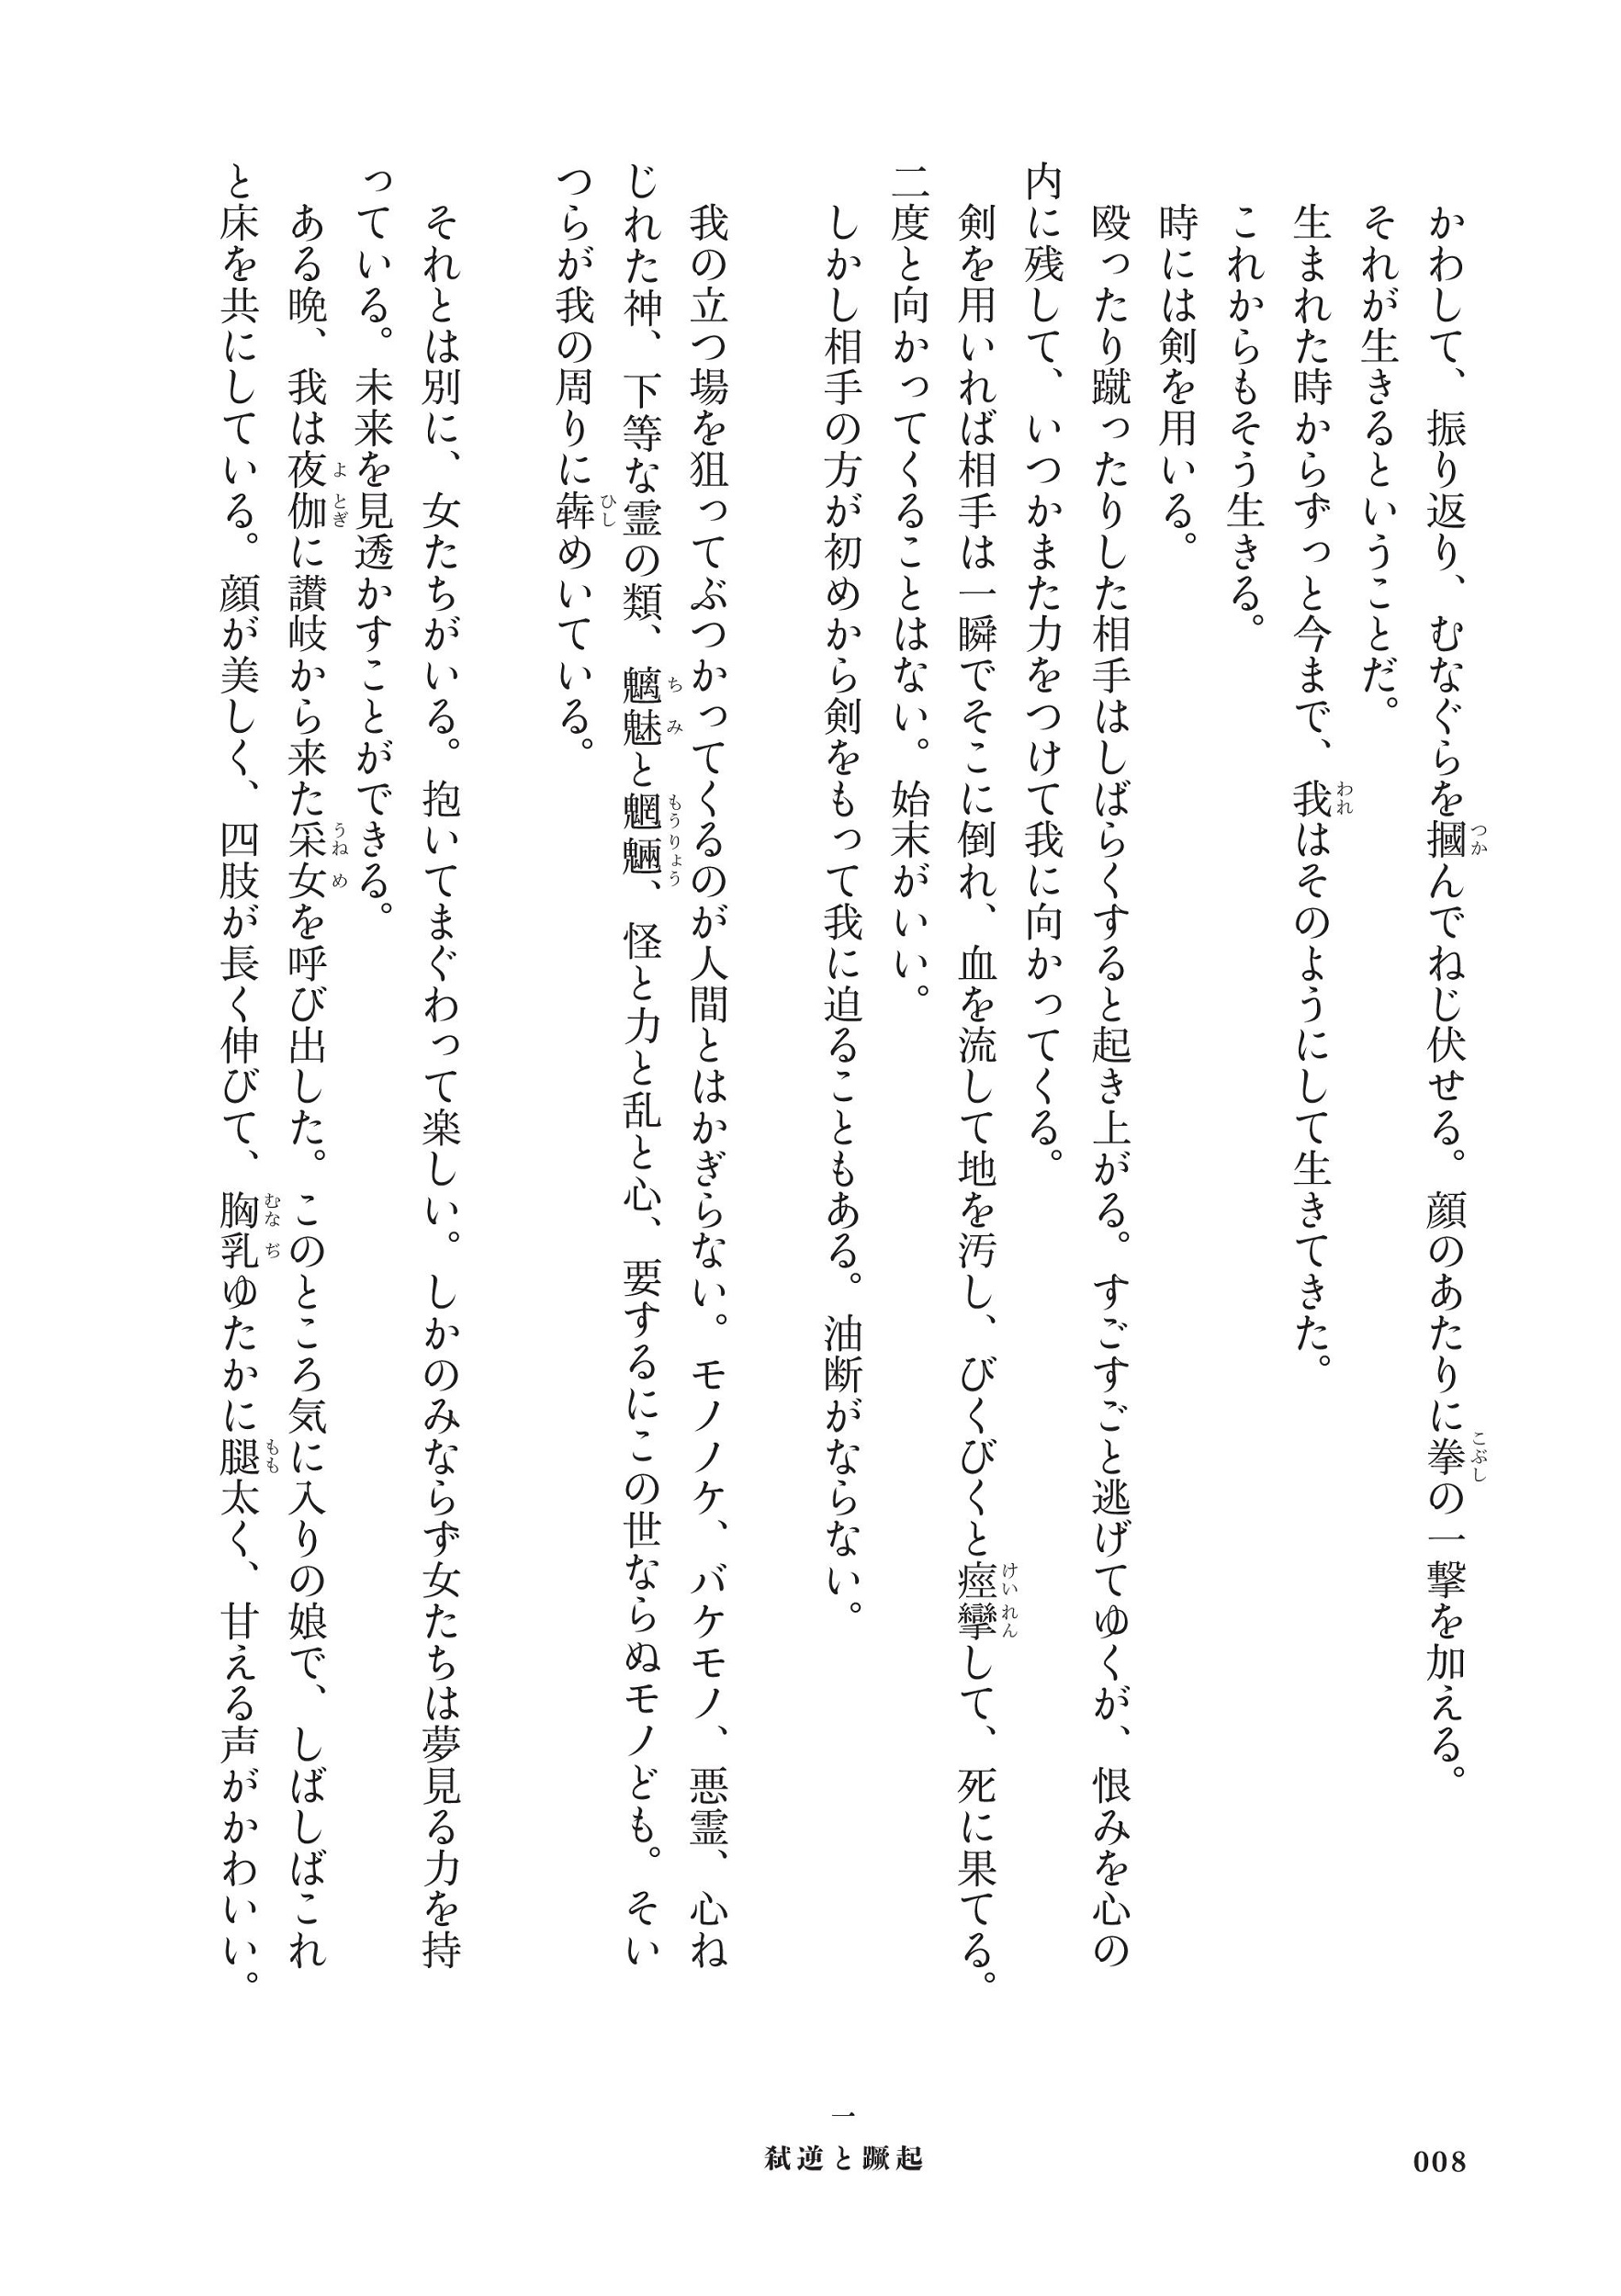 かわして、振り返り、むなぐらを摑んでねじ伏せる。顔のあたりに拳の一撃を加える。
それが生きるということだ。
生まれた時からずっと今まで、我はそのようにして生きてきた。
これからもそう生きる。
時には剣を用いる。
殴ったり蹴ったりした相手はしばらくすると起き上がる。すごすごと逃げてゆくが、恨みを心の
内に残して、いつかまた力をつけて我に向かってくる。
剣を用いれば相手は一瞬でそこに倒れ、血を流して地を汚し、びくびくと痙攣して、死に果てる。
二度と向かってくることはない。始末がいい。
しかし相手の方が初めから剣をもって我に迫ることもある。油断がならない。
我の立つ場を狙ってぶつかってくるのが人間とはかぎらない。モノノケ、バケモノ、悪霊、心ね
じれた神、下等な霊の類、魑魅と魍魎、怪と力と乱と心、要するにこの世ならぬモノども。そい
つらが我の周りに犇めいている。
それとは別に、女たちがいる。抱いてまぐわって楽しい。しかのみならず女たちは夢見る力を持
っている。未来を見透かすことができる。
ある晩、我は夜伽に讃岐から来た采女を呼び出した。このところ気に入りの娘で、しばしばこれ
と床を共にしている。顔が美しく、四肢が長く伸びて、胸乳ゆたかに腿太く、甘える声がかわいい。
一
弑逆と蹶起
008